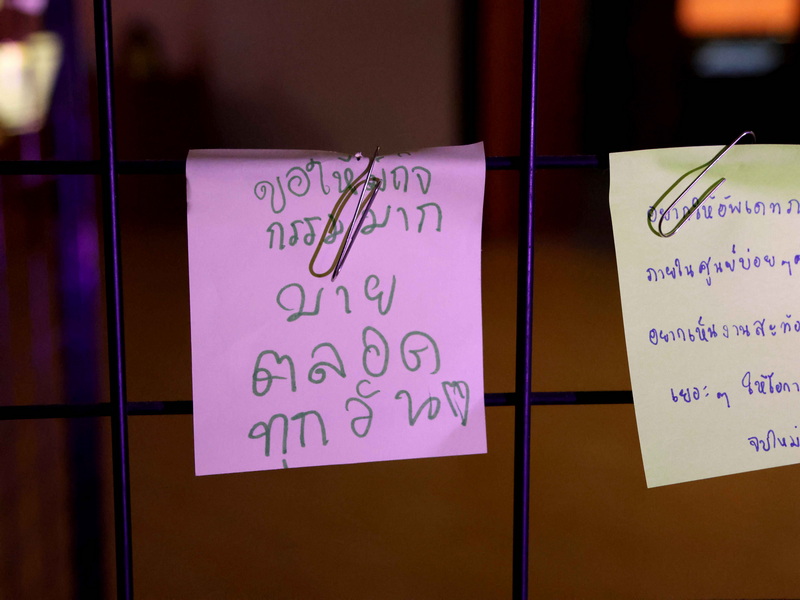 ขอให้มีกิจ
กรรมมาก
มาย
ตลอด
ทุกวัน
อยากให้อัพเดท
ภายในศูนย์บ่อยๆ
อยากเห็นงานสะท้อ
เยอะๆ ให้โอกา
จบใหม่